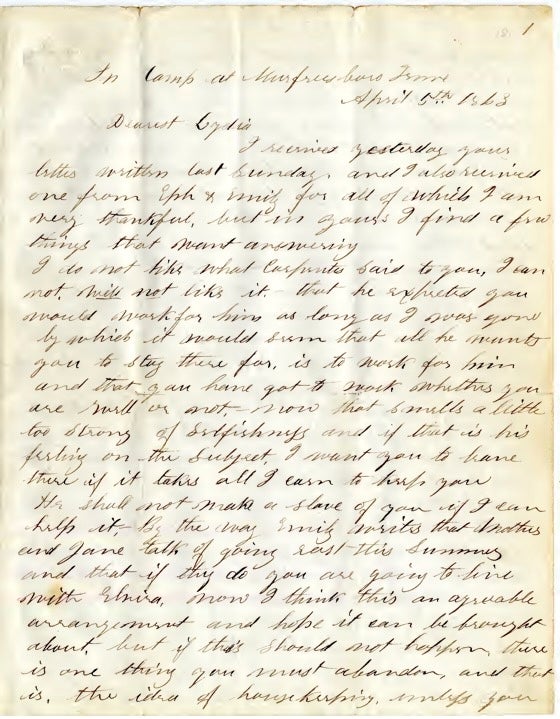 1
In Camp at Murfreesboro Tenn
April 5th 1863
Dearest Lydia
I received yesterday your
letter written last Sunday, and I also received
one from Eph & Emily for all of which I am
very thankful, but in yours I find a few
things that want answering
I do not like what Carpenter said to you, I can
not, will not like it - that he expected you
would work for him as long as I was gone
by which it would seem that all he wants
you to stay there for, is to work for him
and that you have got to work whether you
are well or not - now that smells a little
too strong of selfishness and if that is his
feeling on the subject, I want you to leave
there if it takes all I earn to keep you
He shall not make a slave of you if I can
help it. By the way Emily writes that Mother
and Jane talk of going east this Summer
and that if they do you are going to live
with Elvira, now I think this an agreeable
arrangement and hope it can be brought
about, but if this should not happen, there
is one thing you must abandon, and that
is, the idea of housekeeping, unless your